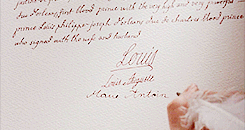 d'Orleans first blood prince with the very high and very powerful
prince Louis philippe-Joseph Orleans duc de chartres blood prince
who signed with the wife and husband
Louis
Louis Auguste
Marie Antoin